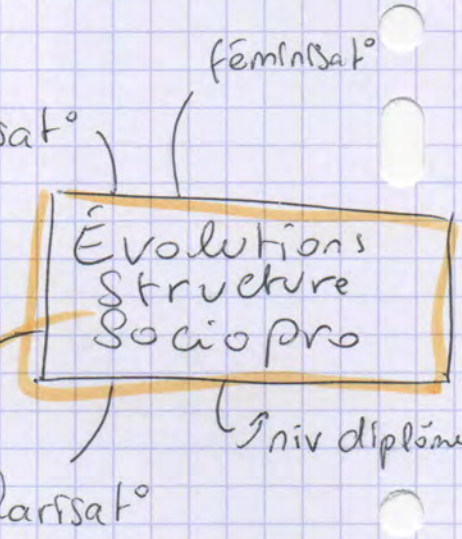 féminisat°
sat°
Évolutions
Structure
Sociopro
↑niv diplôme
larisat°